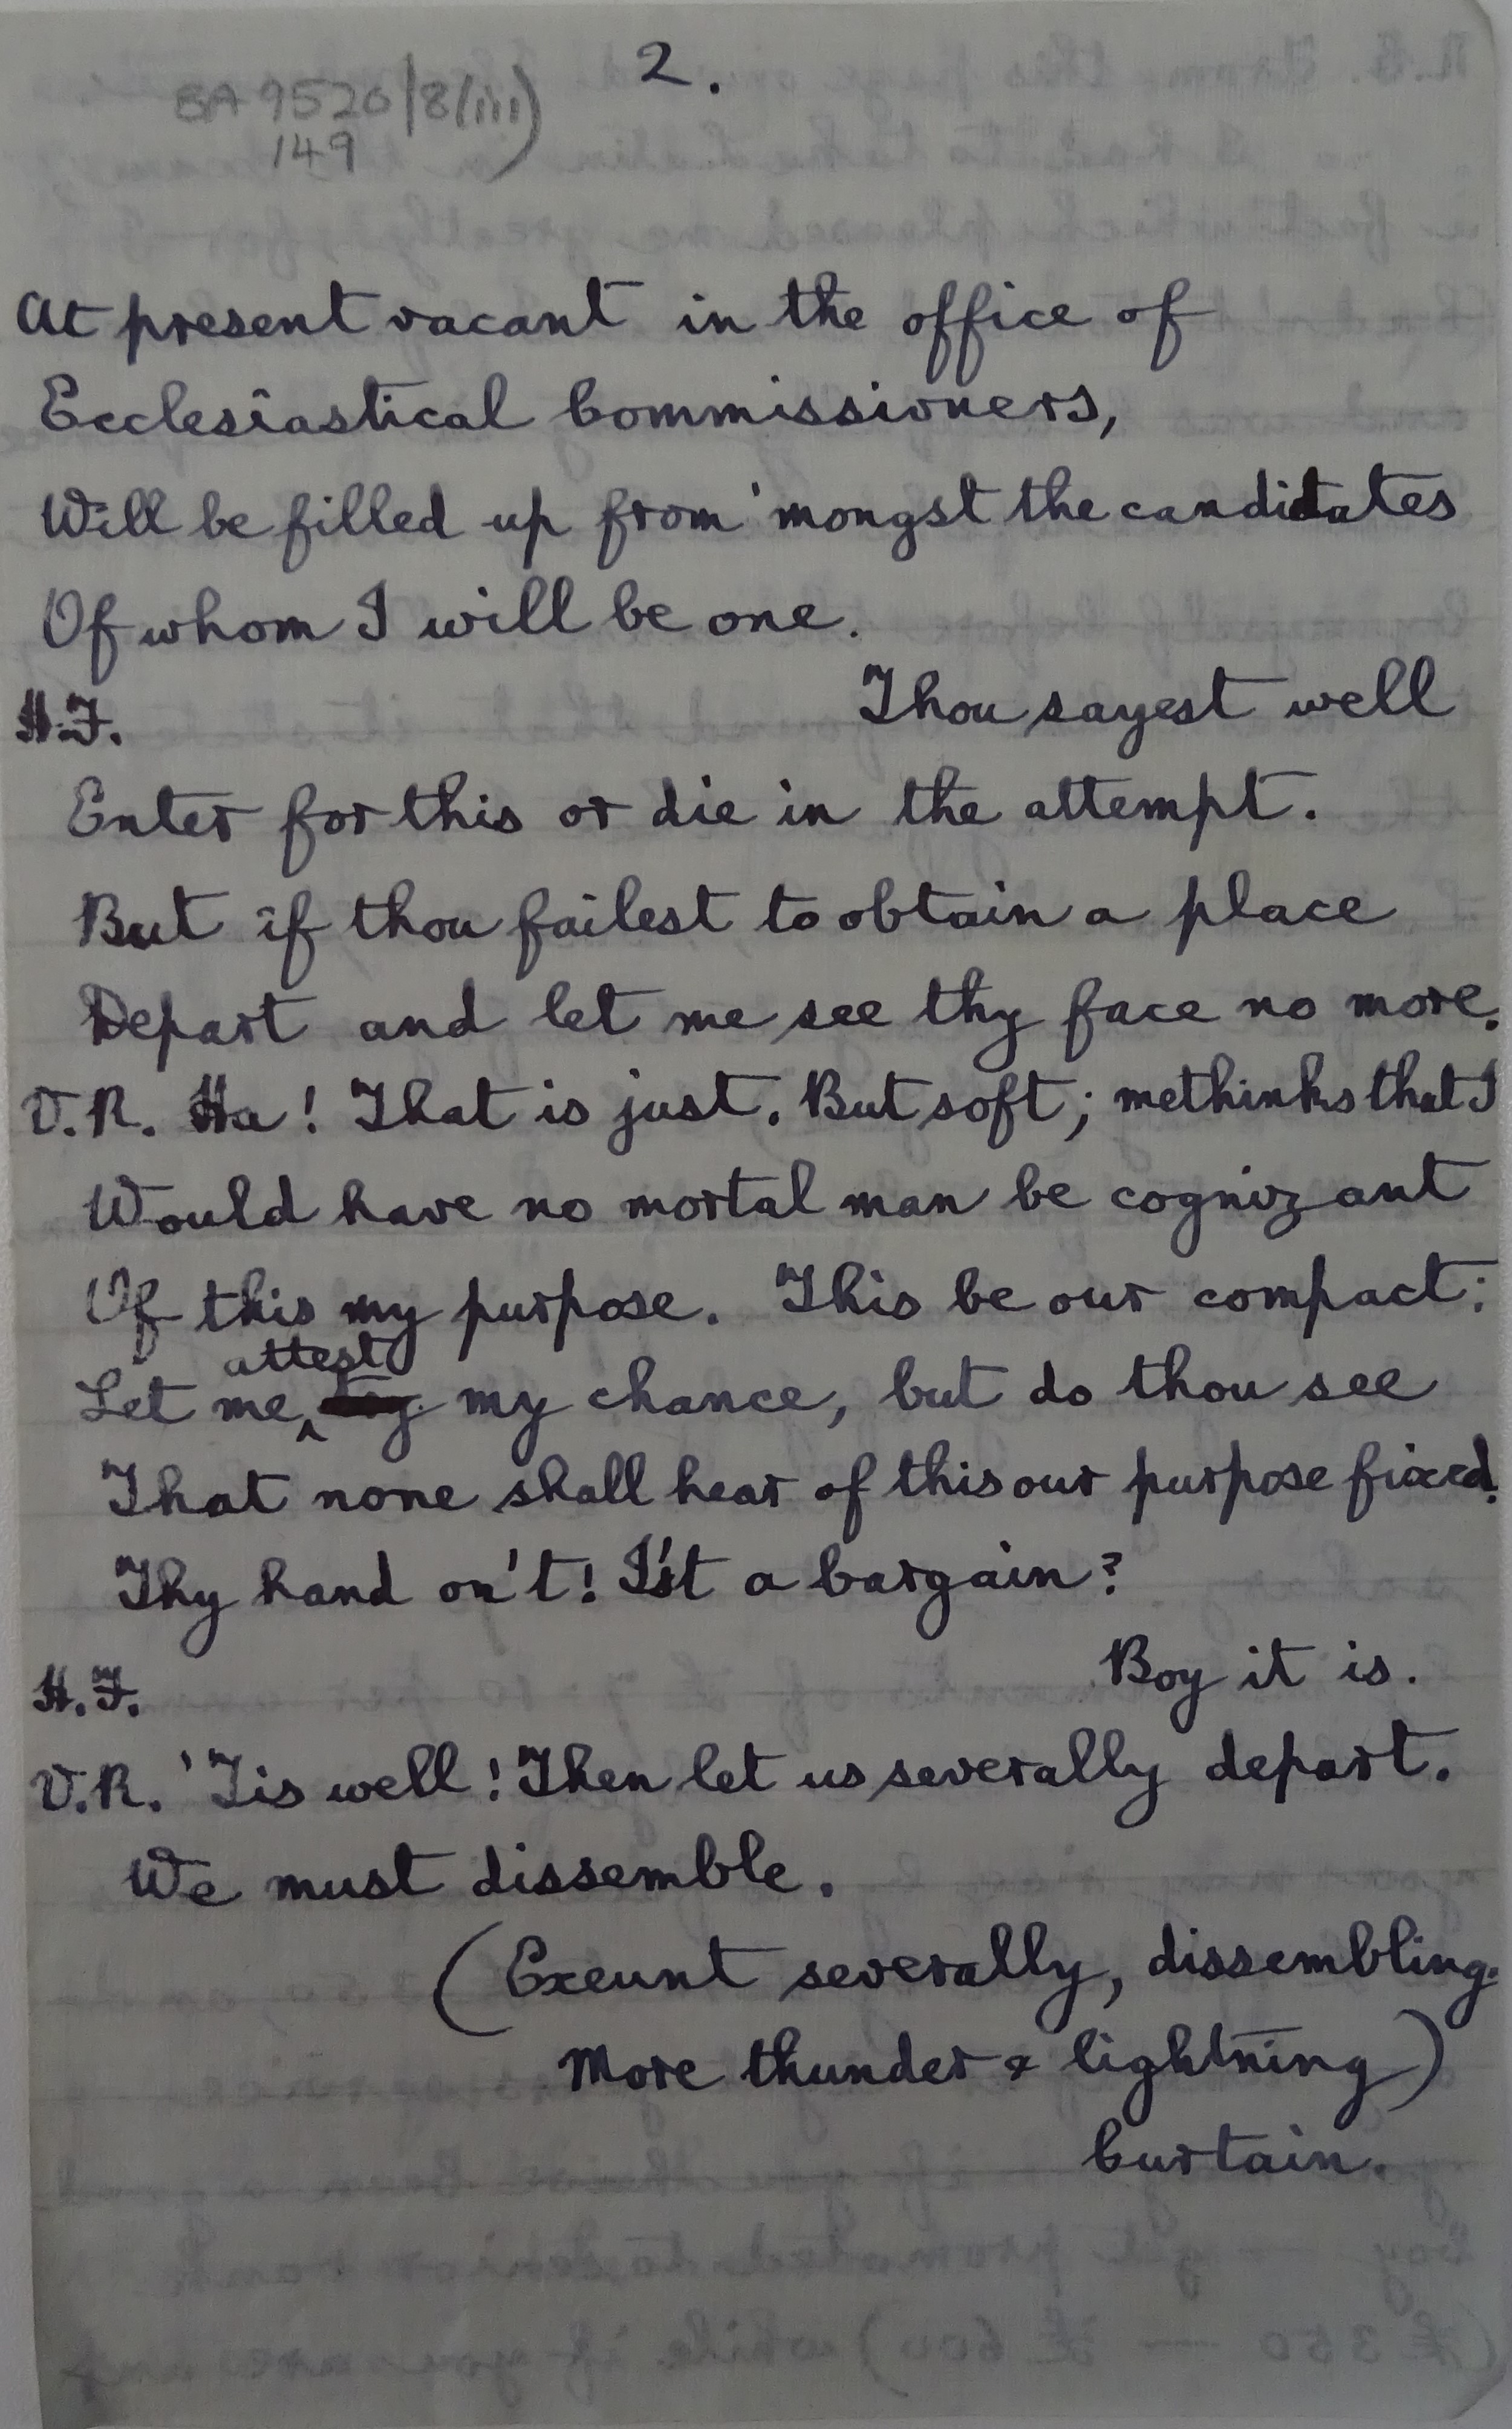 2.
BA 9520/8(iii)
149
At present vacant in the office of
Ecclesiastical Commissioners,
Will be filled up from 'mongst the candidates
Of whom I will be one.
H.F. Thou sayest well
Enter for this or die in the attempt.
But if thou failest to obtain a place
Depart and let me see thy face no more.
V.R. Ha! That is just. But soft; methinks that I
Would have no mortal man be cognizant
Of this my purpose. This be our compact:
attest
Let me, try my chance, but do thou see
That none shall hear of this our purpose fixed.
Thy hand on't! Is't a bargain?
H.F. Boy it is.
V.R. 'Tis well! Then let us severally depart.
We must dissemble.
(Exeunt severally, dissembling.
More thunder & lightning)
Curtain.